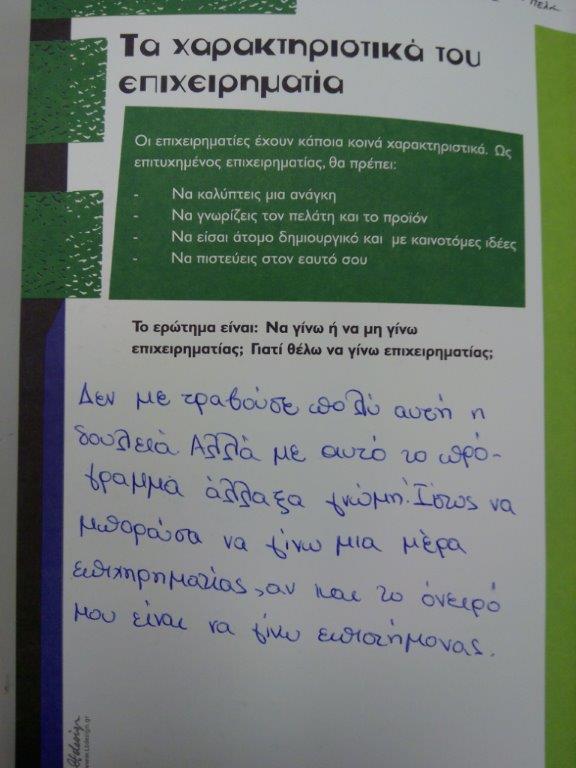 πελα
Τα χαρακτηριστικά του
επιχειρηματία
Οι επιχειρηματίες έχουν κάποια κοινά χαρακτηριστικά. Ως
επιτυχημένος επιχειρηματίας, θα πρέπει:
- Να καλύπτεις μια ανάγκη
- Να γνωρίζεις τον πελάτη και το προϊόν
- Να είσαι άτομο δημιουργικό και με καινοτόμες ιδέες
- Να πιστεύεις στον εαυτό σου
Το ερώτημα είναι: Να γίνω ή να μη γίνω
επιχειρηματίας; Γιατί θέλω να γίνω επιχειρηματίας;
Δεν με τραβούσε πολύ αυτή η
δουλειά. Αλλά με αυτό το πρό-
γραμμα άλλαξα γνώμη. Ίσως να
μπορούσα να γίνω μια μέρα
επιχηρηματίας, αν και το όνειρό
μου είναι να γίνω επιστήμονας.
www.Lbdesign.gr